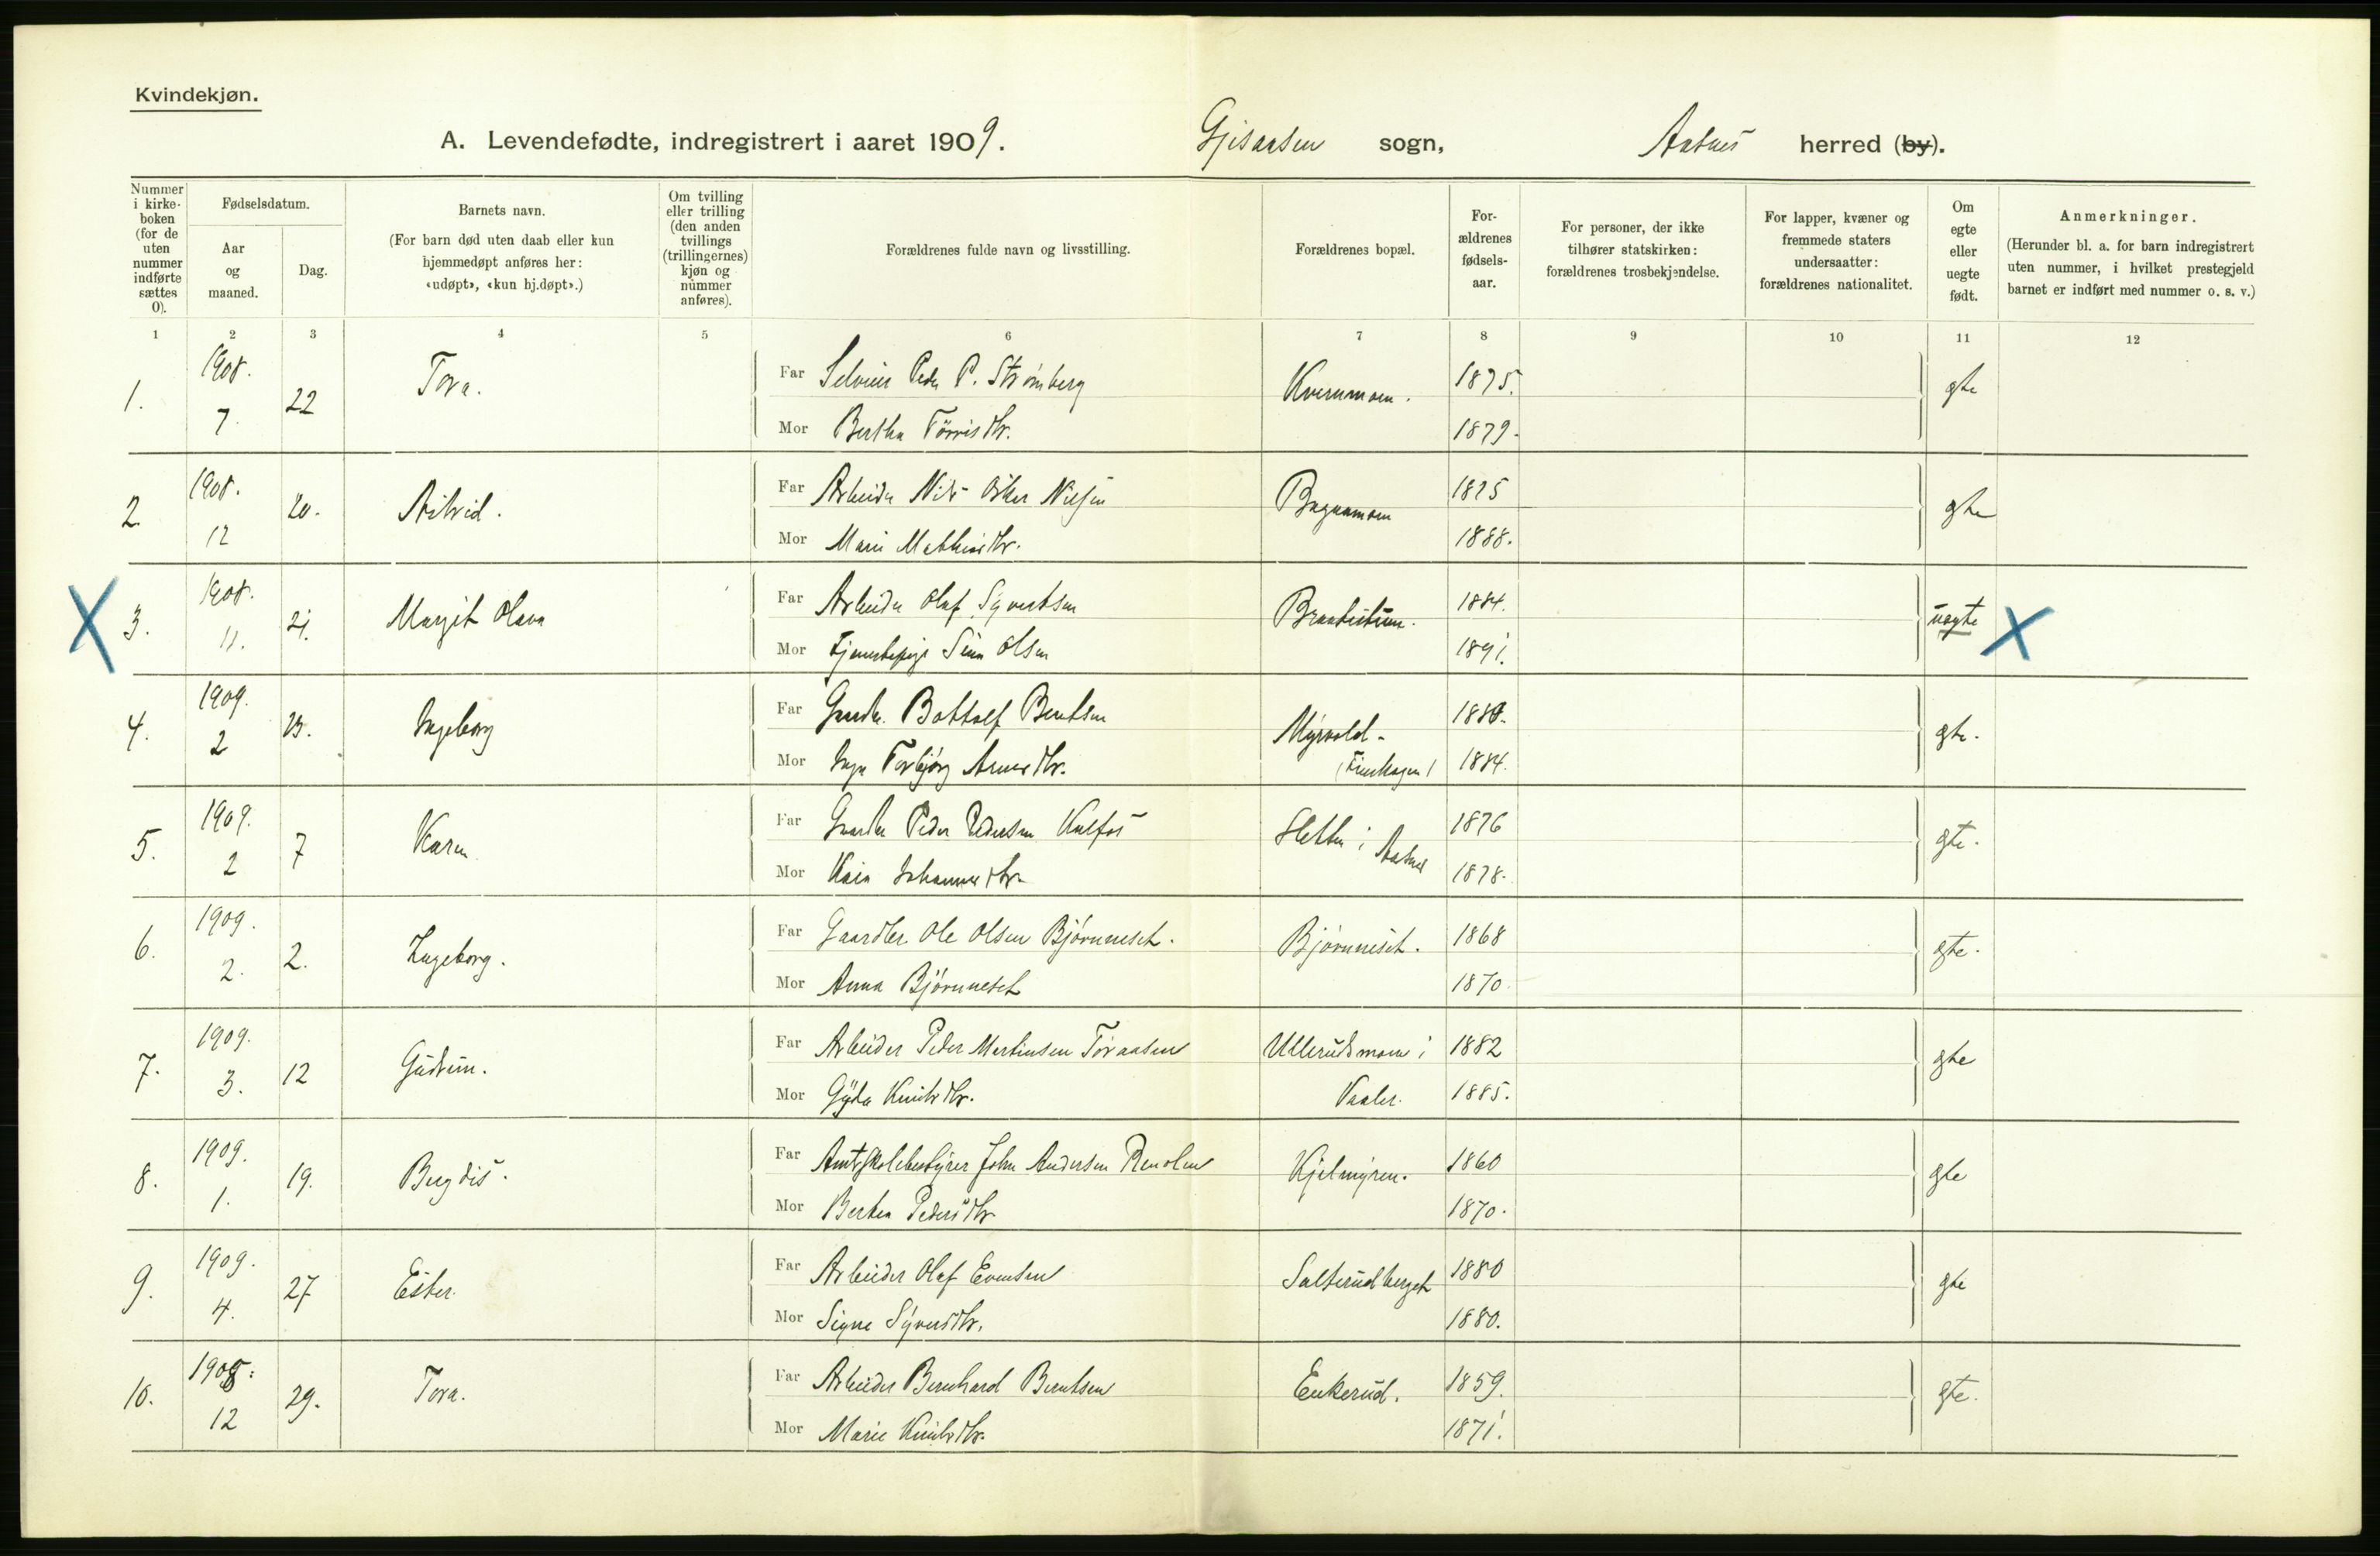 Kvindekjøn.
A. Levendefødte, indregistrert i aaret 1909. Gjesaasen sogn, Aasnes herred (by).
Nummer i kirke-boken (for de uten nummer indførte sættes 0).
Fødselsdatum.
Aar og maaned.
Dag.
Barnets navn.
(For barn død uten daab eller kun hjemmedøpt anføres her: «udøpt», «kun hj.døpt».)
Om tvilling eller trilling (den anden tvillings (trillingernes) kjøn og nummer anføres).
Forældrenes fulde navn og livsstilling.
Forældrenes bopæl.
For-ældrenes fødsels-aar.
For personer, der ikke tilhører statskirken: forældrenes trosbekjendelse.
For lapper, kvæner og fremmede staters undersaatter: forældrenes nationalitet.
Om egte eller uegte født.
Anmerkninger.
(Herunder bl. a. for barn indregistrert uten nummer, i hvilket prestegjeld barnet er indført med nummer o. s. v.)
1 2 3 4 5 6 7 8 9 10 11 12
1. 1908. 7. 22 Tora. Far Selveier Peder P. Strömberg Kvernmoen. 1875. egte
Mor Bertha Törrisdtr. 1879.
2. 1908. 12 20. Astrid. Far Arbeider Nils Oskar Nilsen 1875 egte
Mor Marie Mathisdtr. 1888.
X 3. 1908. 11. 21. Margit Olava Far Arbeider Olaf Syvertsen 1884. uegte X
Mor Tjenestepige Olsen 1891.
4. 1909. 2 Ingeborg Far Gaardbr. Bottolf Berntsen Myrvold. 1880. egte.
Mor Inga Torbjörg Arnesdtr. 1884.
5. 1909. 2 7 Karen Far Gaardbr Peder Pedersen Kalfos Sletten i Aasnes 1876 egte.
Mor Johannesdtr. 1878.
6. 1909. 2. 2. Ingeborg. Far Gaardbr. Ole Olsen Björnneset. Björnneset. 1868 egte.
Mor Anna Björnneset 1870.
7. 1909. 3. 12 Gudrun. Far Arbeider Peder Martinsen Toraasen Ullerudsmoen i 1882 egte
Mor Gyda Knutsdtr. Vaaler. 1885.
8. 1909. 1. 19. Bergdis. Far Amtsskolebestyrer John Andersen Renolen Kjelmyren. 1860 egte
Mor Bertea Pedersdtr 1870.
9. 1909. 4. 27 Ester. Far Arbeider Olaf Evensen Salterudberget 1880 egte
Mor Signe Syversdtr. 1880.
10. 1908: 12 29. Tora. Far Arbeider Bernhard Berntsen Enkerud. 1859. egte.
Mor Marie Knutsdtr. 1871.